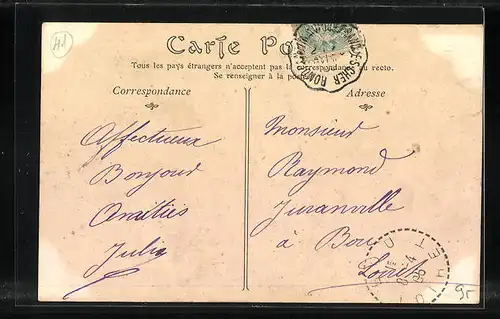 41
Carte Po
Tous les pays étrangers n'acceptent pas la correspondance au recto.
Se renseigner à la poste
Correspondance
Adresse
Affectueux
Bonjour
Amitiés
Julia
Monsieur
Raymond
Juranville
à Bou
Loiret
LOIRET